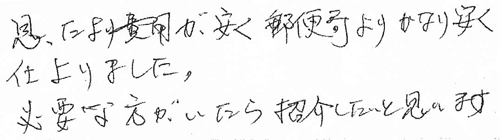 思ったより費用が安く郵便局よりかなり安く
仕上りました。
必要な方がいたら紹介したいと思います